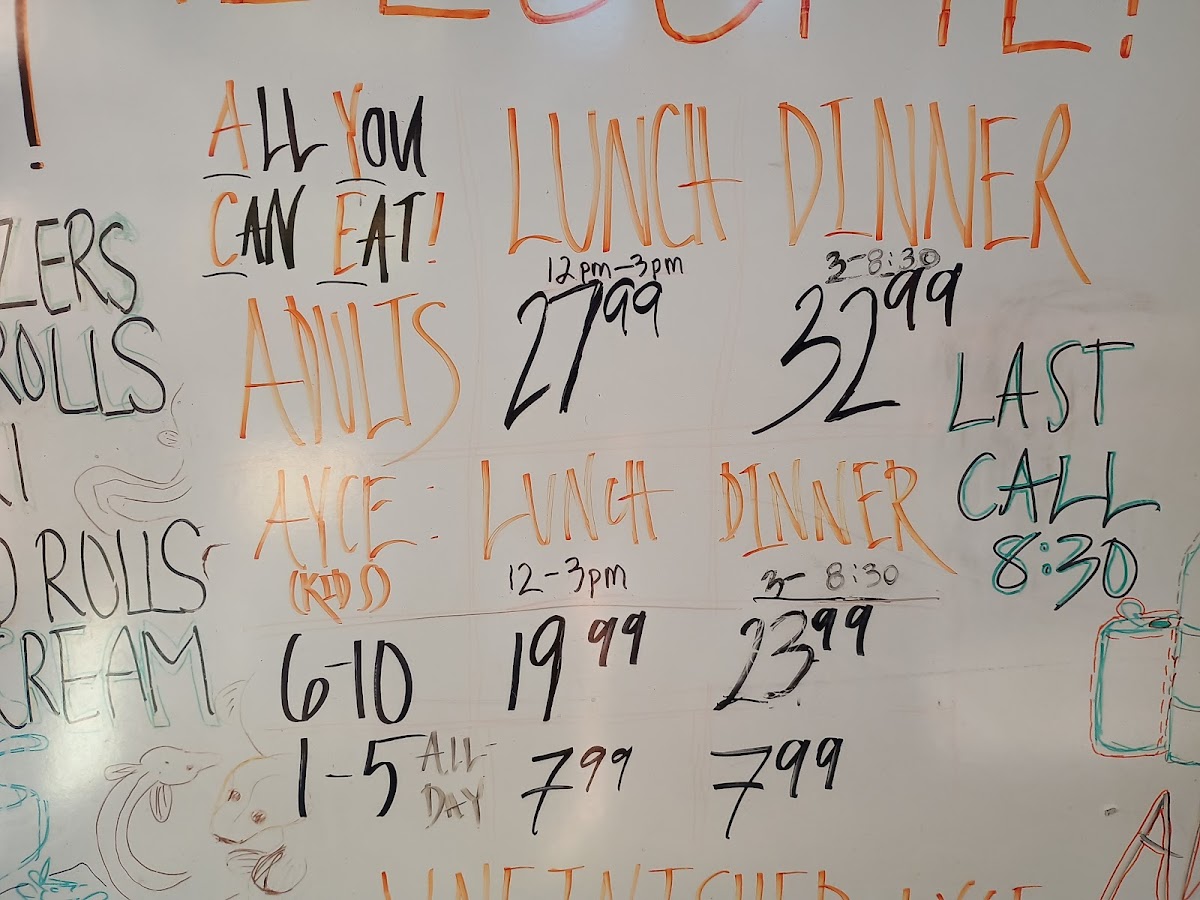 ALL YOU
CAN EAT!
LUNCH DINNER
12pm-3pm 3-8:30
ADULTS 27.99 32.99
LAST
CALL
8:30
AYCE: LUNCH DINNER
(KIDS) 12-3pm 3-8:30
6-10 19.99 23.99
1-5 ALL-DAY 7.99 7.99
ZERS
ROLLS
ROLLS
CREAM
UNFINISHED AYCE